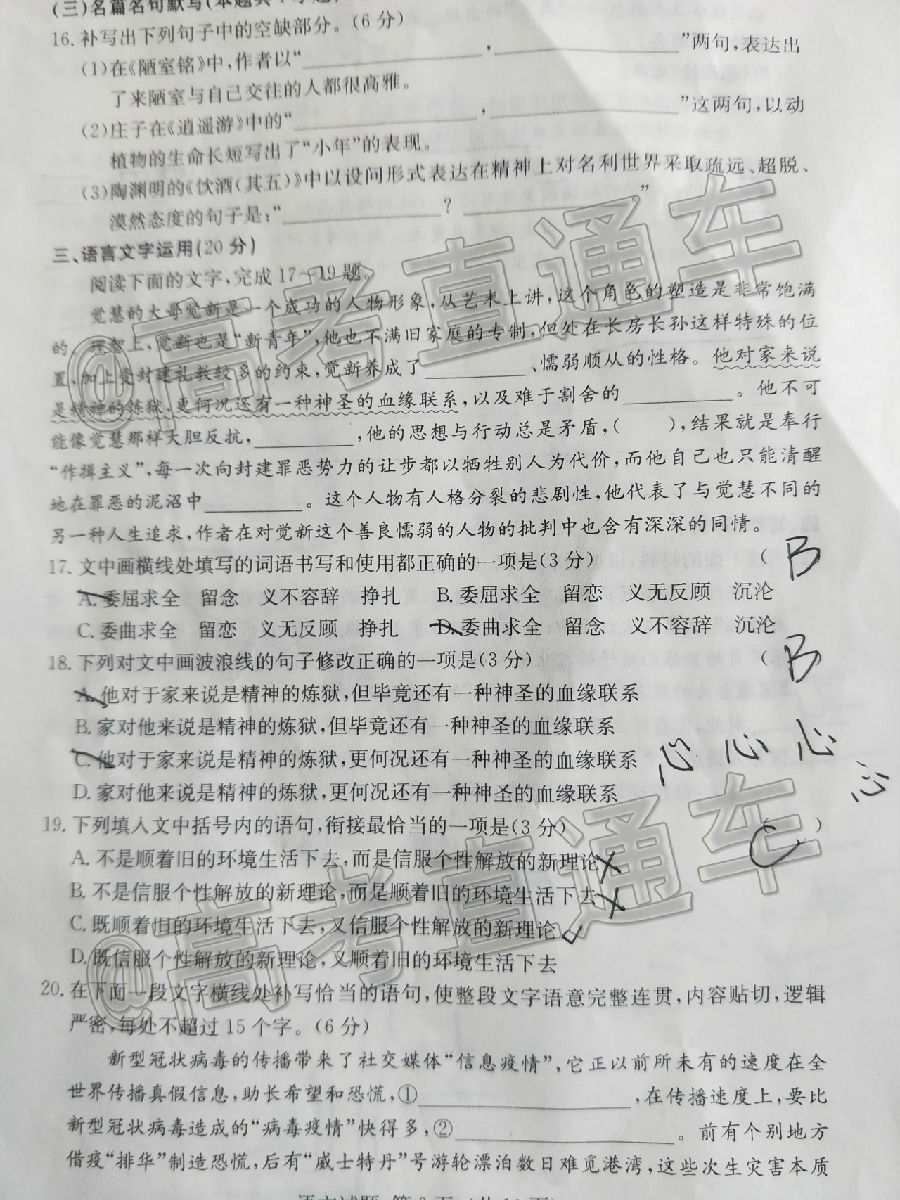 (三)名篇名句默写(本题共1小题,
16.补写出下列句子中的空缺部分。(6分)
(1)在《陋室铭》中,作者以“____________,____________”两句,表达出
了来陋室与自己交往的人都很高雅。
(2)庄子在《逍遥游》中的“____________,____________”这两句,以动
植物的生命长短写出了“小年”的表现。
(3)陶渊明的《饮酒(其五)》中以设问形式表达在精神上对名利世界采取疏远、超脱、
漠然态度的句子是:“____________?____________”
三、语言文字运用(20分)
阅读下面的文字,完成17~19题。
觉慧的大哥觉新是一个成功的人物形象,从艺术上讲,这个角色的塑造是非常饱满
的。理智上,觉新也是“新青年”,他也不满旧家庭的专制,但处在长房长孙这样特殊的位
置,加上受封建礼教较多的约束,觉新养成了________、懦弱顺从的性格。他对家来说
是精神的炼狱,更何况还有一种神圣的血缘联系,以及难于割舍的________。他不可
能像觉慧那样大胆反抗,________,他的思想与行动总是矛盾,(  ),结果就是奉行
“作揖主义”,每一次向封建罪恶势力的让步都以牺牲别人为代价,而他自己也只能清醒
地在罪恶的泥沼中________。这个人物有人格分裂的悲剧性,他代表了与觉慧不同的
另一种人生追求,作者在对觉新这个善良懦弱的人物的批判中也含有深深的同情。
17.文中画横线处填写的词语书写和使用都正确的一项是(3分) ( B
A.委屈求全 留念 义不容辞 挣扎 B.委屈求全 留恋 义无反顾 沉沦
C.委曲求全 留恋 义无反顾 挣扎 D.委曲求全 留念 义不容辞 沉沦
18.下列对文中画波浪线的句子修改正确的一项是(3分) ( B
A.他对于家来说是精神的炼狱,但毕竟还有一种神圣的血缘联系
B.家对他来说是精神的炼狱,但毕竟还有一种神圣的血缘联系
C.他对于家来说是精神的炼狱,更何况还有一种神圣的血缘联系 心 心 心
心
D.家对他来说是精神的炼狱,更何况还有一种神圣的血缘联系
19.下列填入文中括号内的语句,衔接最恰当的一项是(3分) ( C )
A.不是顺着旧的环境生活下去,而是信服个性解放的新理论
B.不是信服个性解放的新理论,而是顺着旧的环境生活下去
C.既顺着旧的环境生活下去,又信服个性解放的新理论
D.既信服个性解放的新理论,又顺着旧的环境生活下去
20.在下面一段文字横线处补写恰当的语句,使整段文字语意完整连贯,内容贴切,逻辑
严密,每处不超过15个字。(6分)
新型冠状病毒的传播带来了社交媒体“信息疫情”,它正以前所未有的速度在全
世界传播真假信息,助长希望和恐慌,①____________,在传播速度上,要比
新型冠状病毒造成的“病毒疫情”快得多,②____________。前有个别地方
借疫“排华”制造恐慌,后有“威士特丹”号游轮漂泊数日难觅港湾,这些次生灾害本质
@高考直通车
@高考直通车